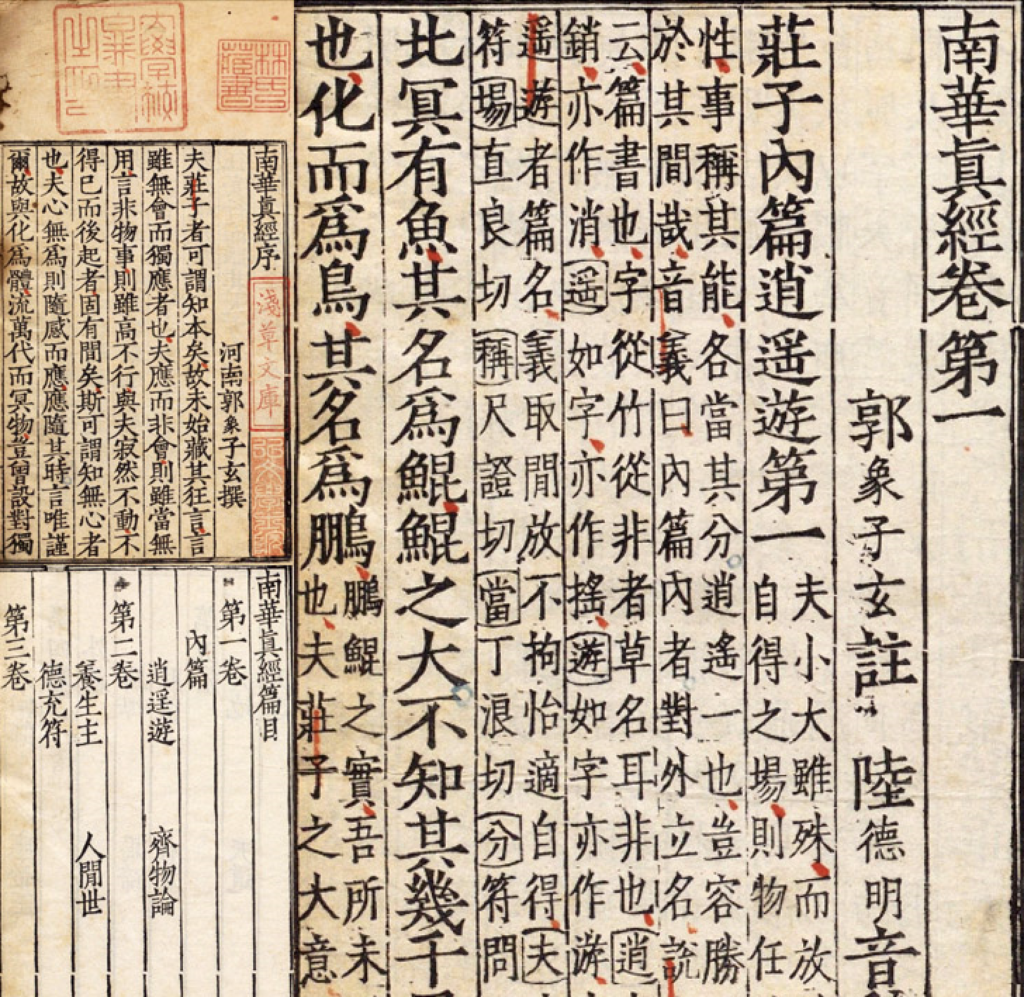 南華真經卷第一
郭象子玄註　陸德明音
莊子內篇逍遥遊第一
夫小大雖殊而放
自得之場則物任
性事稱其能各當其分逍遥一也豈容勝
於其間哉音義曰內篇內者對外立名說
云篇書也字從竹從非者草名耳非也逍
銷亦作消遥如字亦作搖遊如字亦作游
遥遊者篇名義取閒放不拘怡適自得夫
符場直良切稱尺證切當丁浪切分符問
北冥有魚其名爲鯤鯤之大不知其幾千
也化而爲鳥其名爲鵬
鵬鯤之實吾所未
也夫莊子之大意
林氏藏書
南華真經序
淺草文庫
河南郭象子玄撰
夫莊子者可謂知本矣故未始藏其狂言言
雖無會而獨應者也夫應而非會則雖當無
用言非物事則雖高不行與夫寂然不動不
得已而後起者固有間矣斯可謂知無心者
也夫心無爲則隨感而應應隨其時言唯謹
爾故與化爲體流萬代而冥物豈曾設對獨
南華真經篇目
第一卷
內篇
逍遥遊　齊物論
第二卷
養生主　人閒世
德充符
第三卷